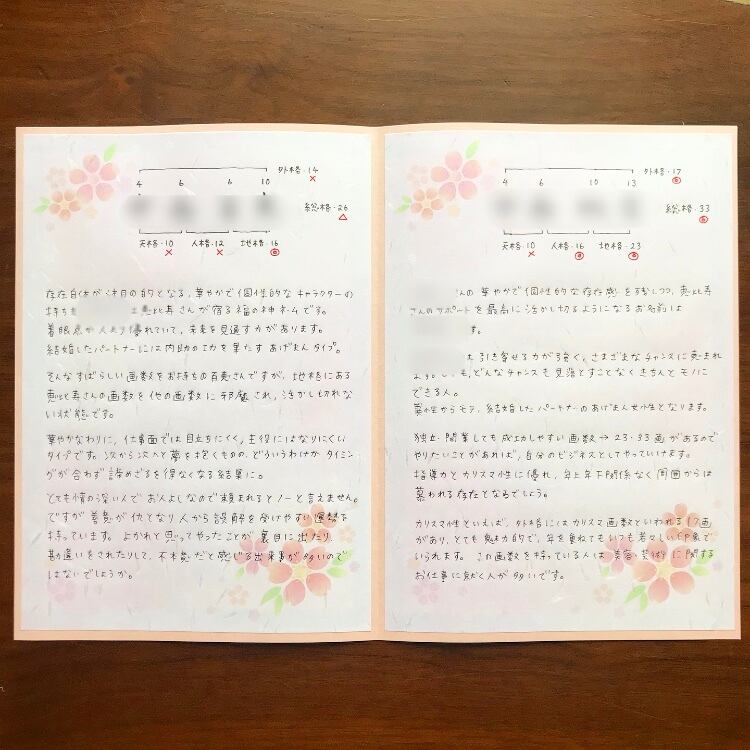 外格・14
×
4 6 6 10
総格・26
△
天格・10 人格・12 地格・16
× ×
存在自体が注目の的となる、華やかで個性的なキャラクターの
持ち 恵比寿さんが宿る福の神ネームです。
着眼点が人より優れていて、未来を見通す力があります。
結婚したパートナーには内助の功を果たすあげまんタイプ。
そんなすばらしい画数をお持ちの百恵さんですが、地格にある
恵比寿さんの画数を他の画数に邪魔され、活かし切れな
い状態です。
華やかなわりに、仕事面では目立ちにくく、主役にはなりにくい
タイプです。次から次へと夢を抱くものの、どういうわけかタイミン
グが合わず諦めざるを得なくなる結果に。
とても情の深い人でお人よしなので頼まれるとノーと言えません。
ですが善意が仇となり人から誤解を受けやすい運勢も
持っています。よかれと思ってやったことが裏目に出たり
勘違いをされたりして、不本意だと感じる出来事が多いので
はないでしょうか。
外格・17
4 6 10 13
総格・33
天格・10 人格・16 地格・23
×
んの華やかで個性的な存在感を残しつつ、恵比寿
さんのサポートを最高に活かし切るようになるお名前は
す。
は引き寄せる力が強く、さまざまなチャンスに恵まれ
ます。 も、どんなチャンスも見落とすことなくきちんとモノに
できる人。
異性からモテ、結婚したパートナーのあげまん女性となります。
独立・開業しても成功しやすい画数→23・33画があるので
やりたいことがあれば、自分のビジネスとしてやっていけます。
指導力とカリスマ性に優れ、年上年下関係なく周囲からは
慕われる存在となるでしょう。
カリスマ性といえば、外格にはカリスマ画数といわれる「17画」
があり、とても魅力的で、年を重ねてもいつも若々しい印象で
いられます。この画数を持っている人は美容・芸術に関する
お仕事に就く人が多いです。